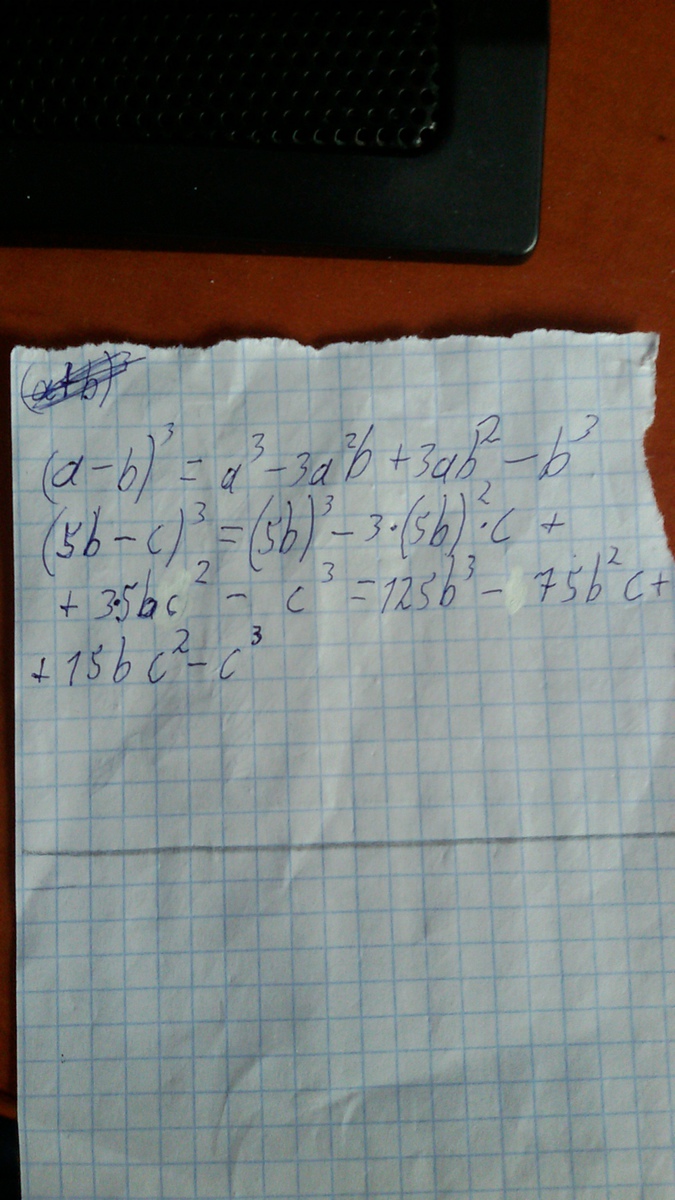 (a+b)³
(a-b)³ = a³ - 3a²b + 3ab² - b³
(5b - c)³ = (5b)³ - 3·(5b)²·c +
+ 3·5bc² - c³ = 125b³ - 75b²c +
+ 15bc² - c³